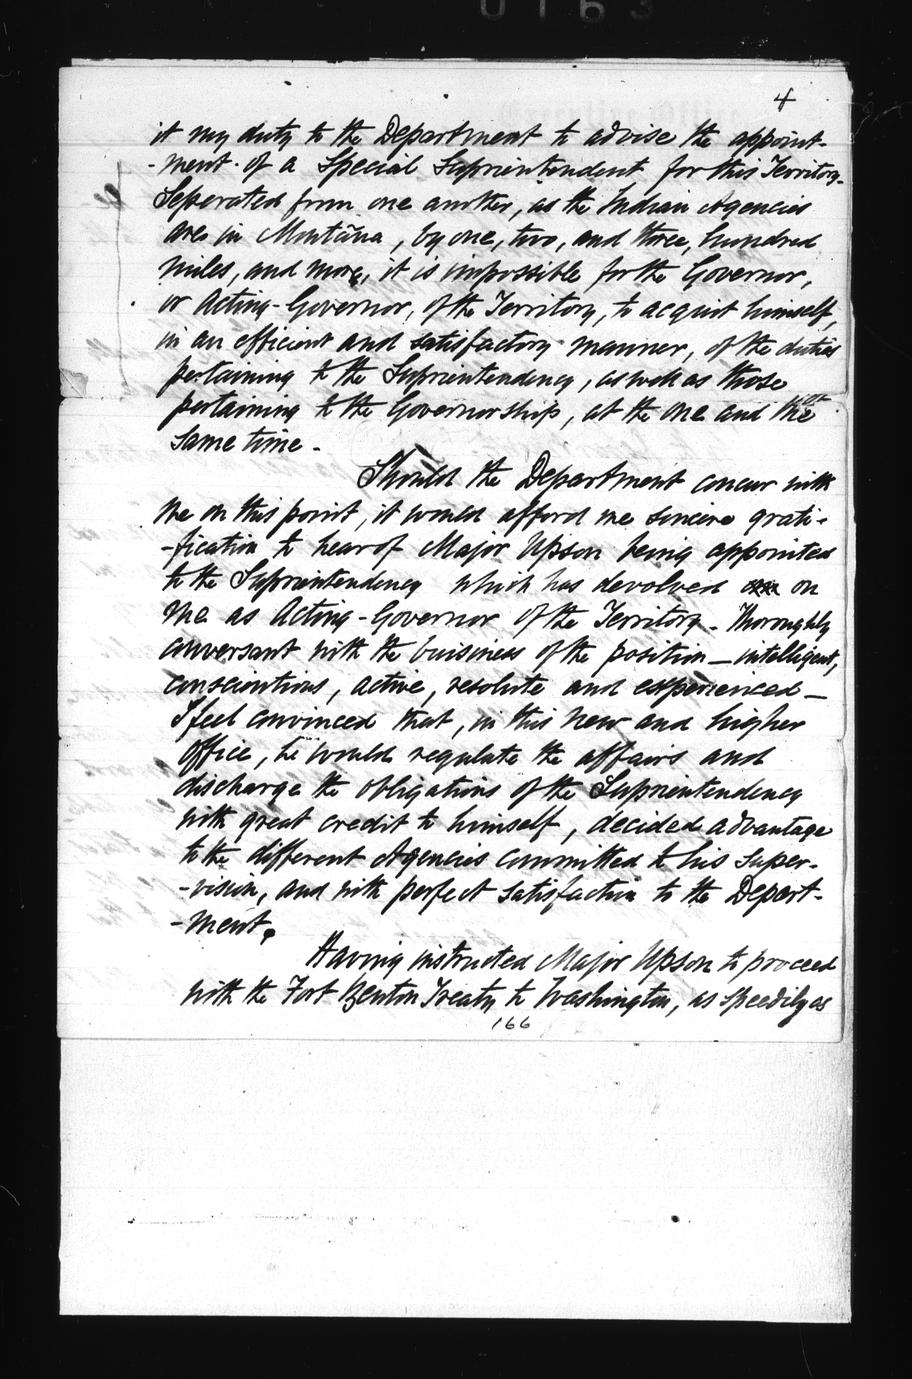 0163
4
it my duty to the Department to advise the appoint-
-ment of a Special Suprintendent for this Territory.
Seperated from one another, as the Indian Agencies
are in Montaña, by one, two, and three, hundred
miles, and more, it is impossible for the Governor,
or Acting-Governor, of the Territory, to acquit himself,
in an efficient and satisfactory manner, of the duties
pertaining to the Suprintendency, as well as those
pertaining to the Governorship, at the one and the
same time.
Should the Department concur with
me on this point, it would afford me sincere grati-
-fication to hear of Major Upson being appointed
to the Suprintendency which has devolved on
me as Acting-Governor of the Territory. Thoroughly
conversant with the buisiness of the position — intelligent,
conscientious, active, resolute and experienced —
I feel convinced that, in this new and higher
office, he would regulate the affairs and
discharge the obligations of the Suprintendency
with great credit to himself, decided advantage
to the different Agencies committed to his super-
-vision, and with perfect satisfaction to the Depart-
-ment.
Having instructed Major Upson to proceed
with the Fort Benton Treaty to Washington, as speedily as
166